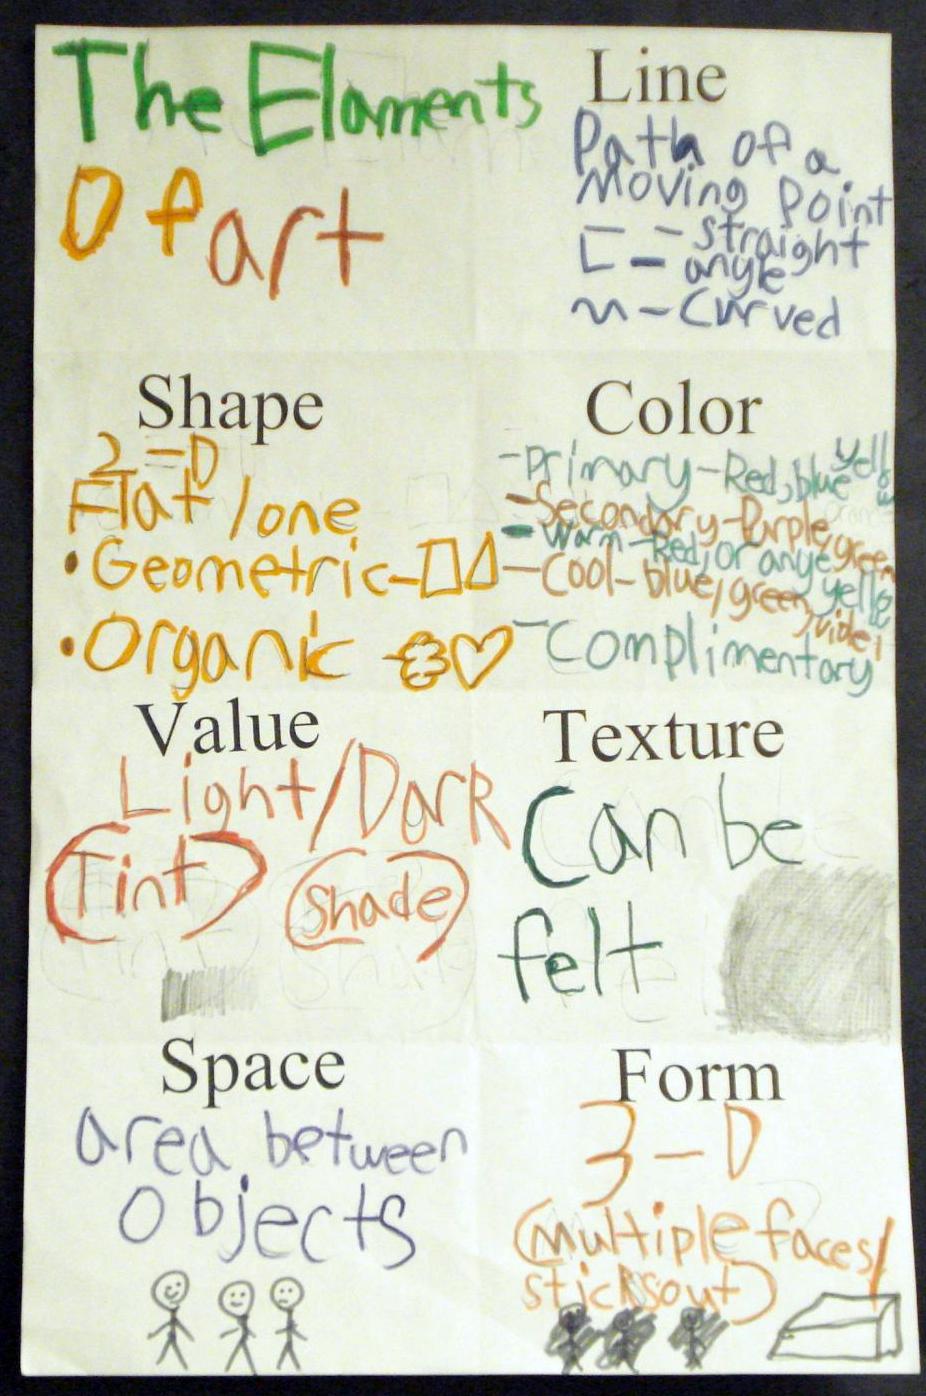 The Elaments
Of art
Line
Path of a
Moving Point
- straight
- angle
- Curved
Shape
2-D
Flat/one
• Geometric-
• Organic
Color
-Primary-Red, blue yellow
-Secondary-Purple, green orange
-Warm-Red, orange yellow
-Cool-blue, green,
-Complimentary
Value
Light/Dark
Tint
Shade
Texture
Can be
felt
Space
area between
Objects
Form
3-D
(multiple faces/
sticksout)